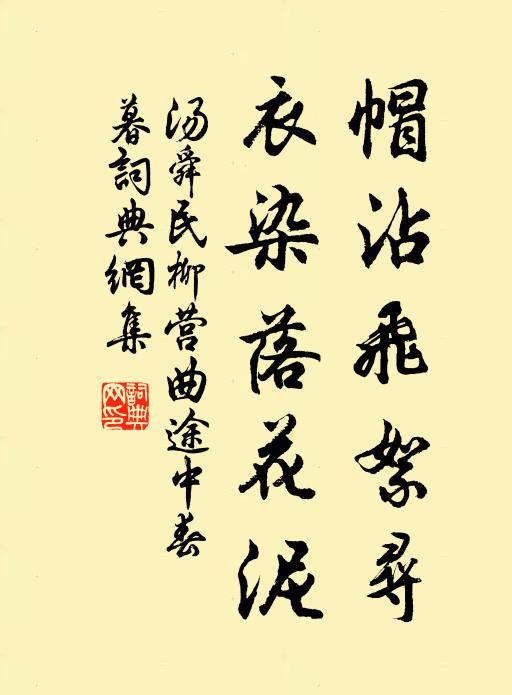 帽沾飛絮尋
衣染落花泥
汤舜民柳营曲途中春
暮詞典網集
詞典
网印